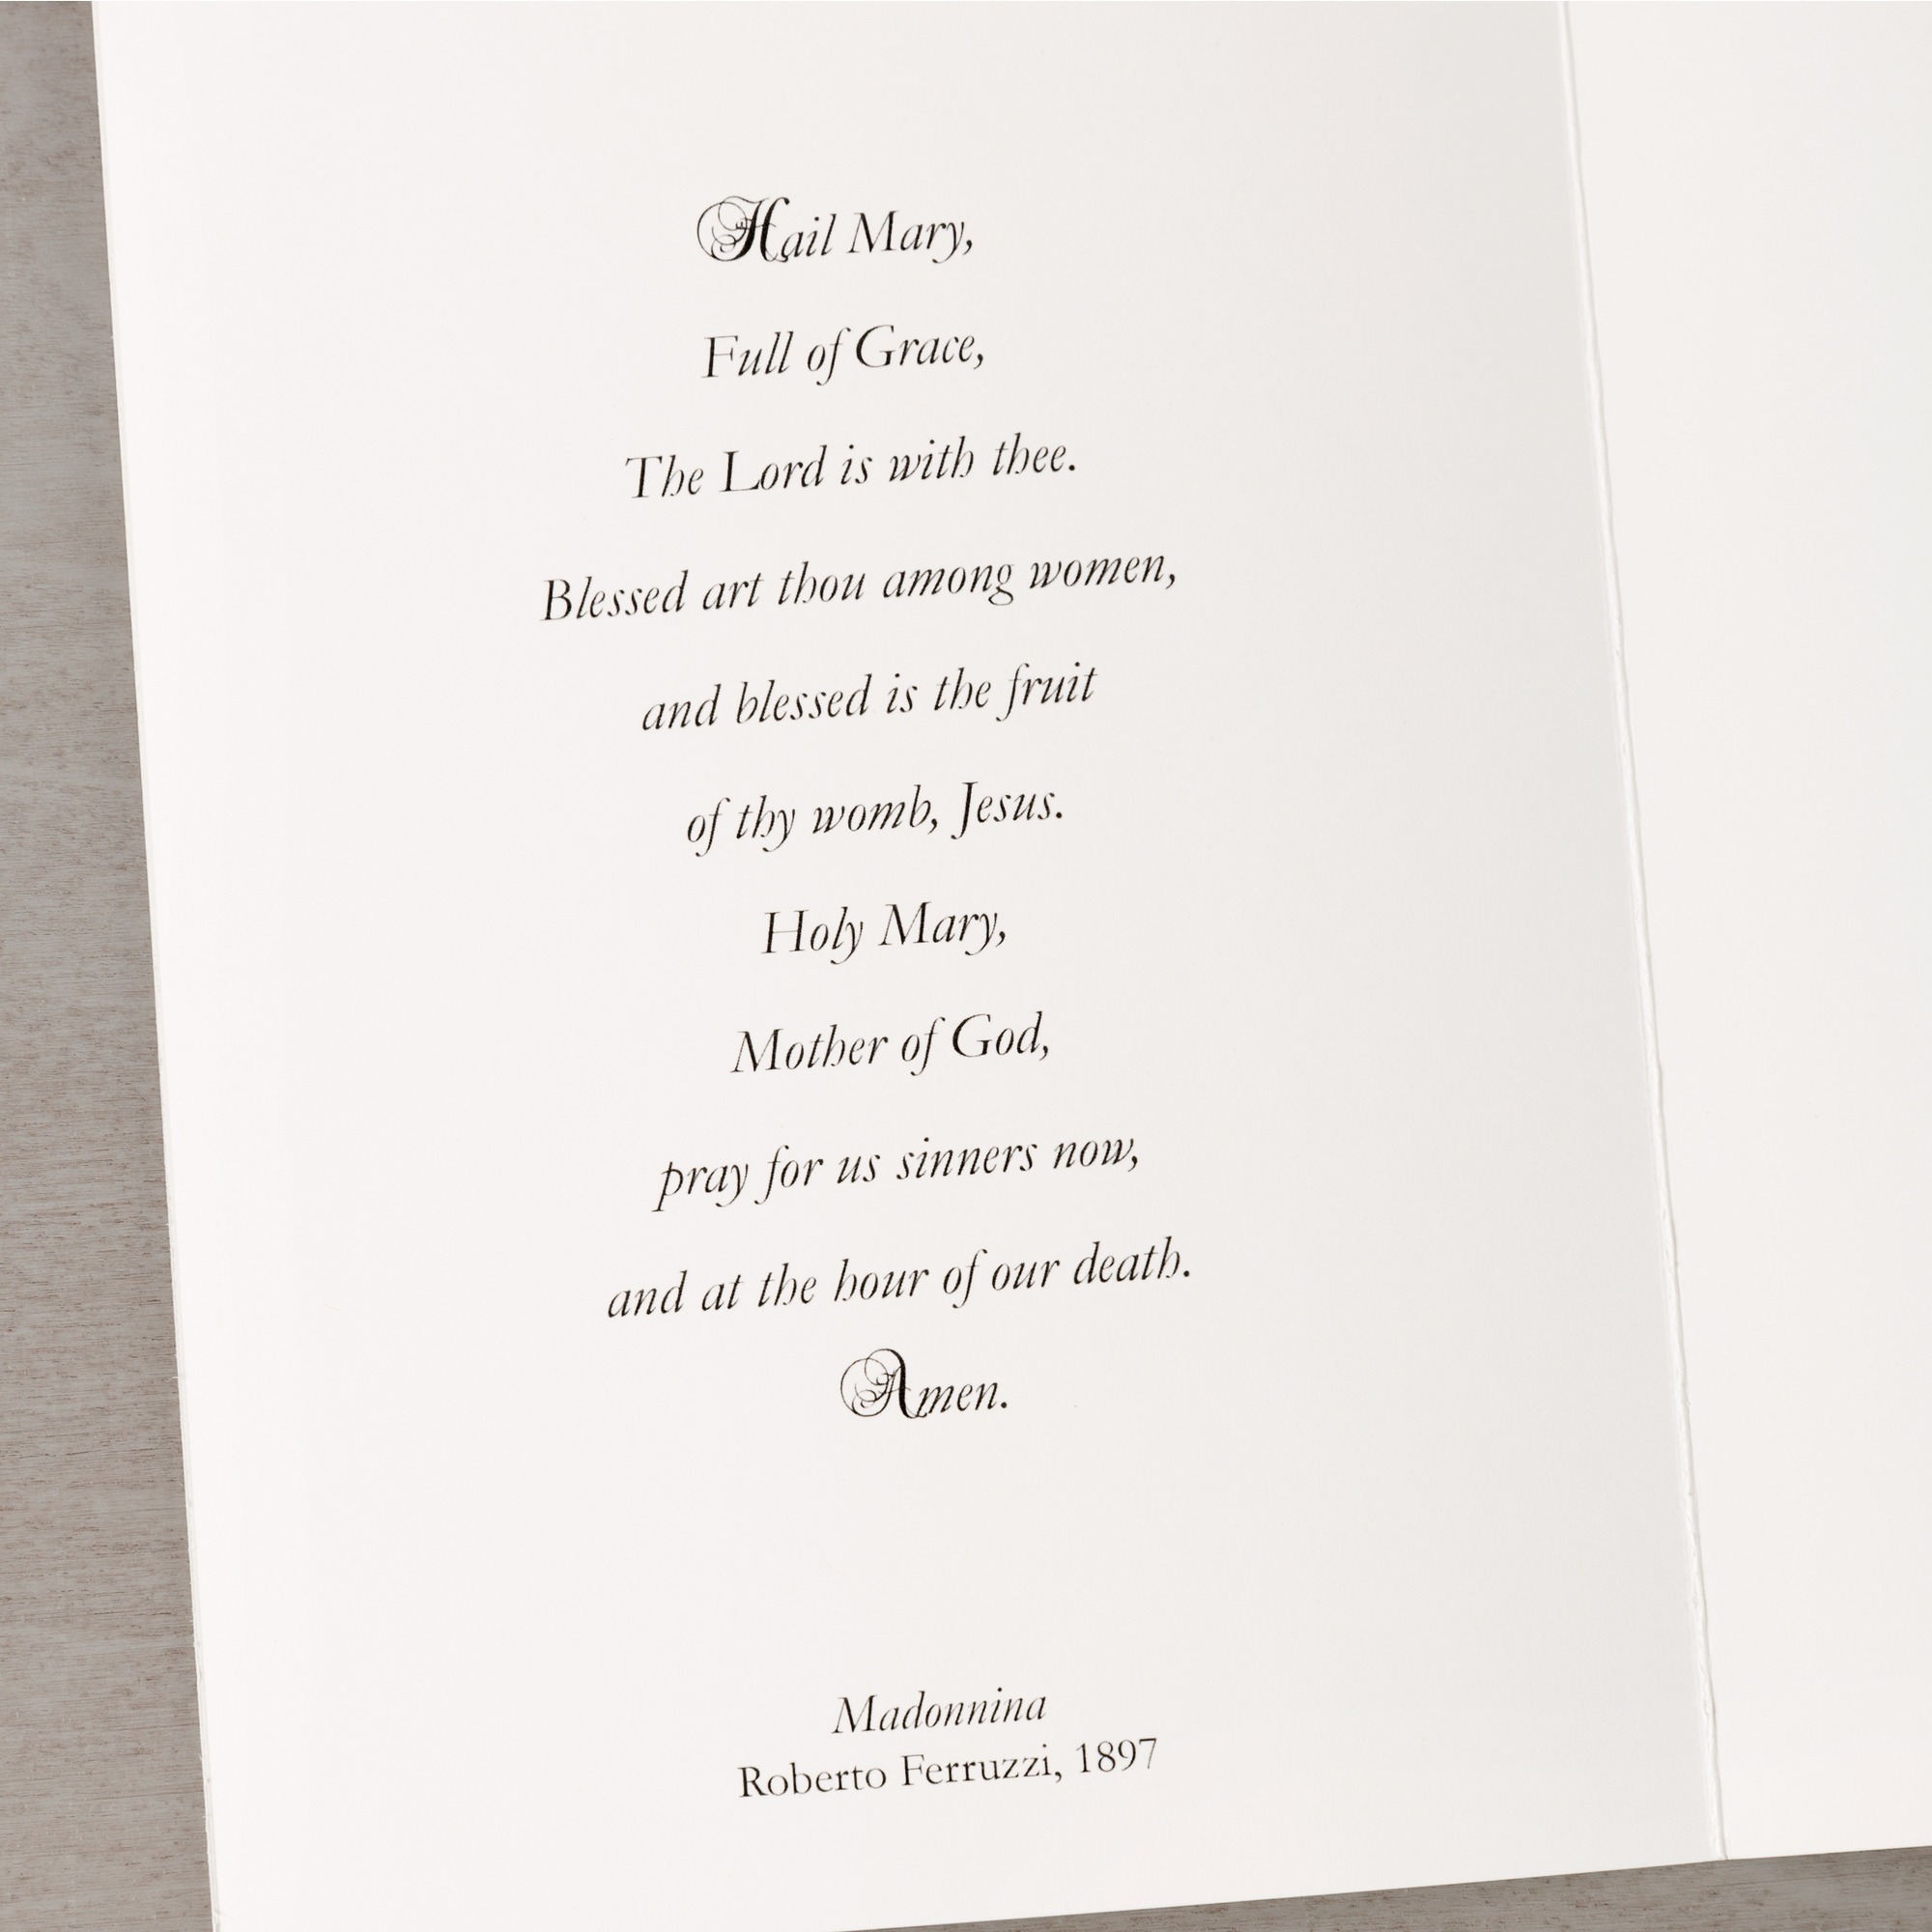 Hail Mary,
Full of Grace,
The Lord is with thee.
Blessed art thou among women,
and blessed is the fruit
of thy womb, Jesus.
Holy Mary,
Mother of God,
pray for us sinners now,
and at the hour of our death.
Amen.
Madonnina
Roberto Ferruzzi, 1897